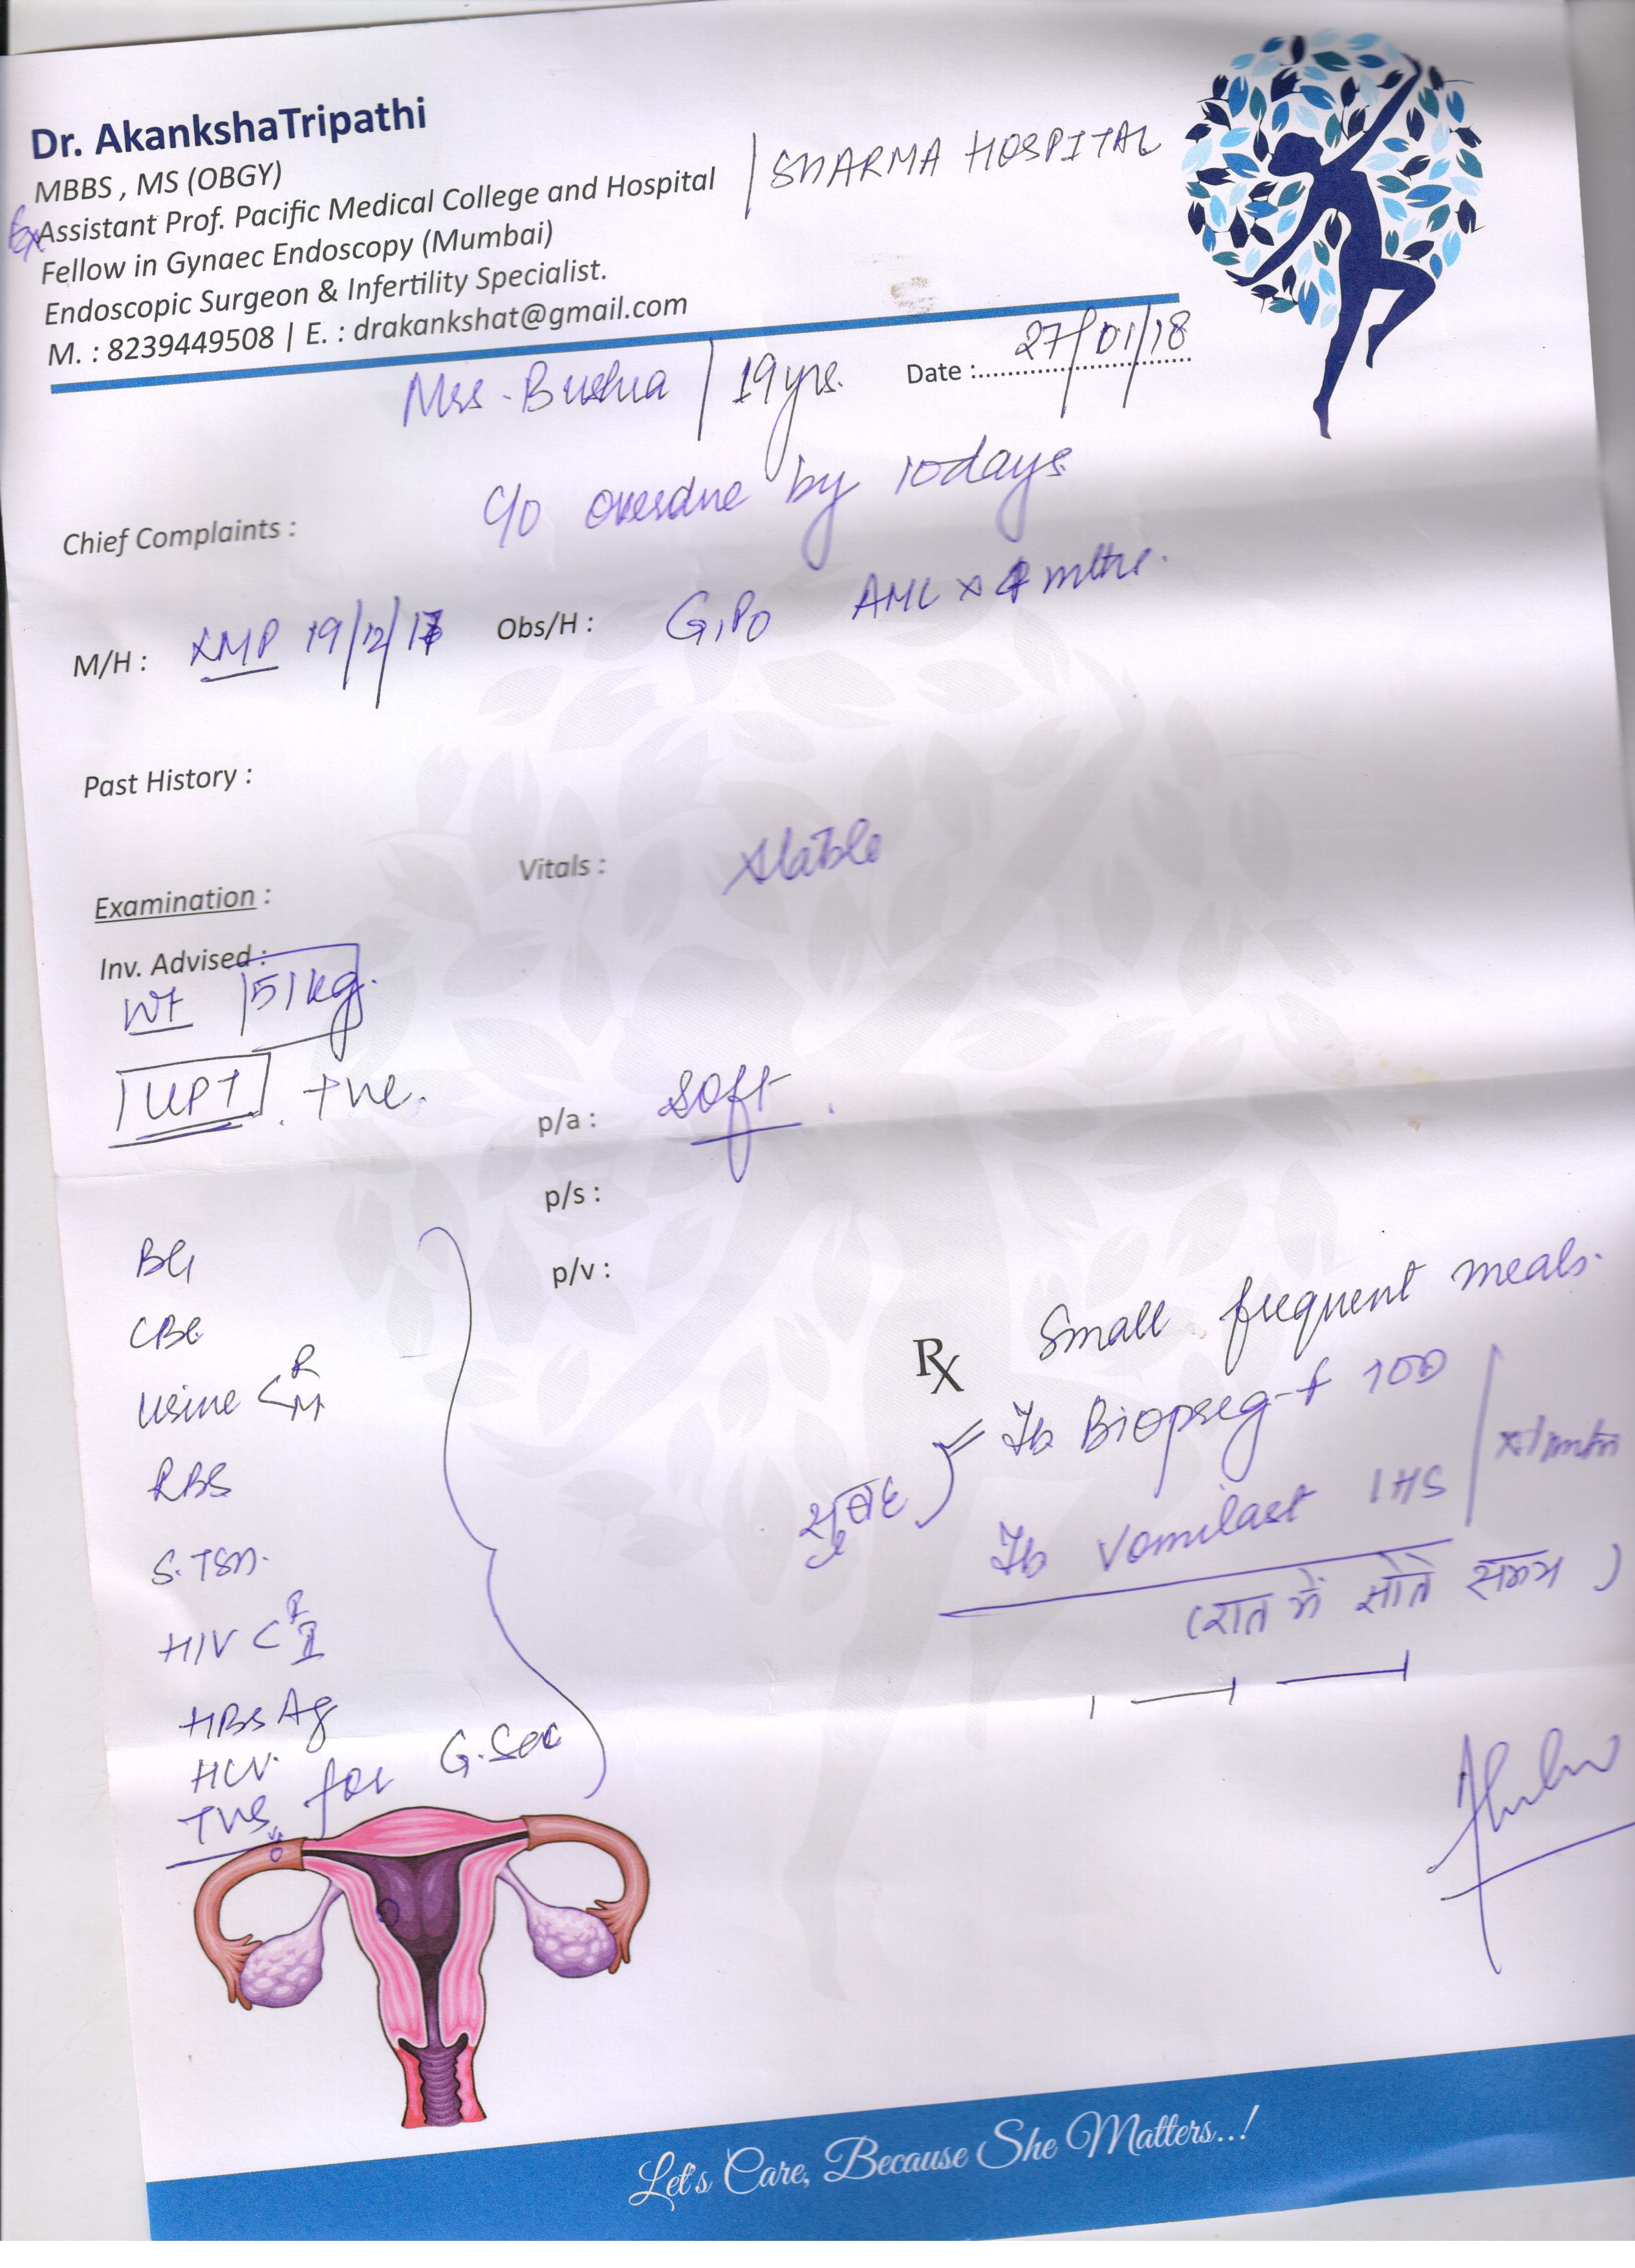 Dr. AkankshaTripathi
MBBS , MS (OBGY)
Ex Assistant Prof. Pacific Medical College and Hospital | SHARMA HOSPITAL
Fellow in Gynaec Endoscopy (Mumbai)
Endoscopic Surgeon & Infertility Specialist.
M. : 8239449508 | E. : drakankshat@gmail.com
Mrs. Bushra / 19 yrs. Date : 27/01/18
Chief Complaints : c/o overdue by 10 days
M/H : LMP 19/12/17 Obs/H : G1P0 AML x mths.
Past History :
Vitals : stable
Examination :
Inv. Advised :
Wt 51 kg.
UPT +ve.
p/a : soft
p/s :
p/v :
BG
CBC
Urine < R M
RBS
S.TSH.
HIV < I II
HBsAg
HCV.
TVS for G.Sac
Rx Small frequent meals.
Tb Biopreg-f 1OD
सुबह
Tb Vomilast 1HS
x 1 mth
(रात में सोते समय)
Let's Care, Because She Matters..!